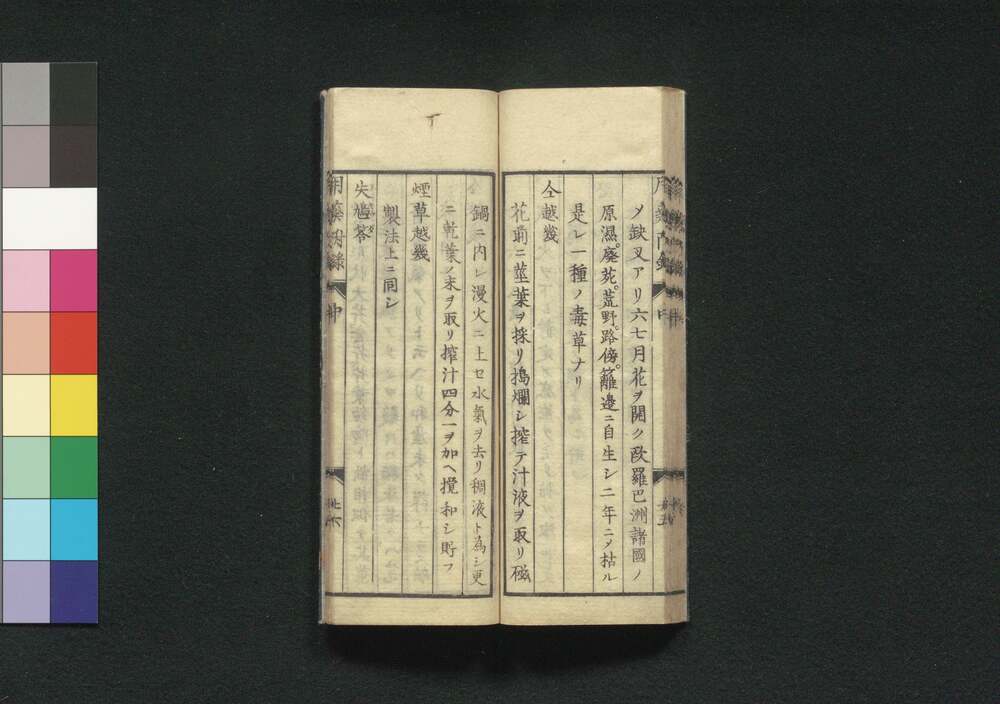 メ缺叉アリ六七月花ヲ開ク欧羅巴洲諸國ノ
原濕。廢苑。荒野。路傍。籬邊ニ自生シ二年ニメ枯ル
是レ一種ノ毒草ナリ
仝越幾
花前ニ莖葉ヲ採リ搗爛シ搾テ汁液ヲ取リ磁
鍋ニ内レ漫火ニ上セ水氣ヲ去リ稠液ト為シ更
ニ乾葉ノ末ヲ取リ搾汁四分一ヲ加ヘ攪和シ貯フ
煙草越幾
製法上ニ同シ
失鳩答
中
廿六
廿五